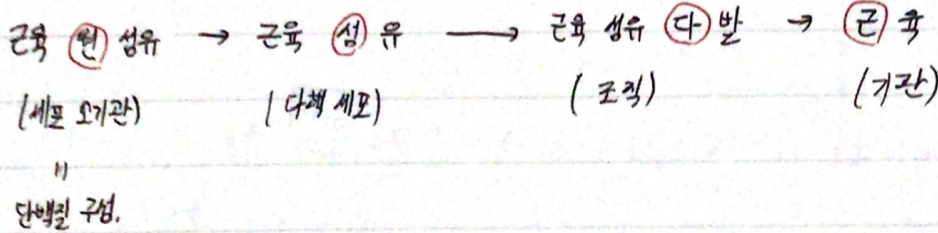 근육 원 섬유 → 근육 섬유 → 근육 섬유 다발 → 근육
(세포 소기관) (다핵 세포) (조직) (기관)
=
단백질 구성.